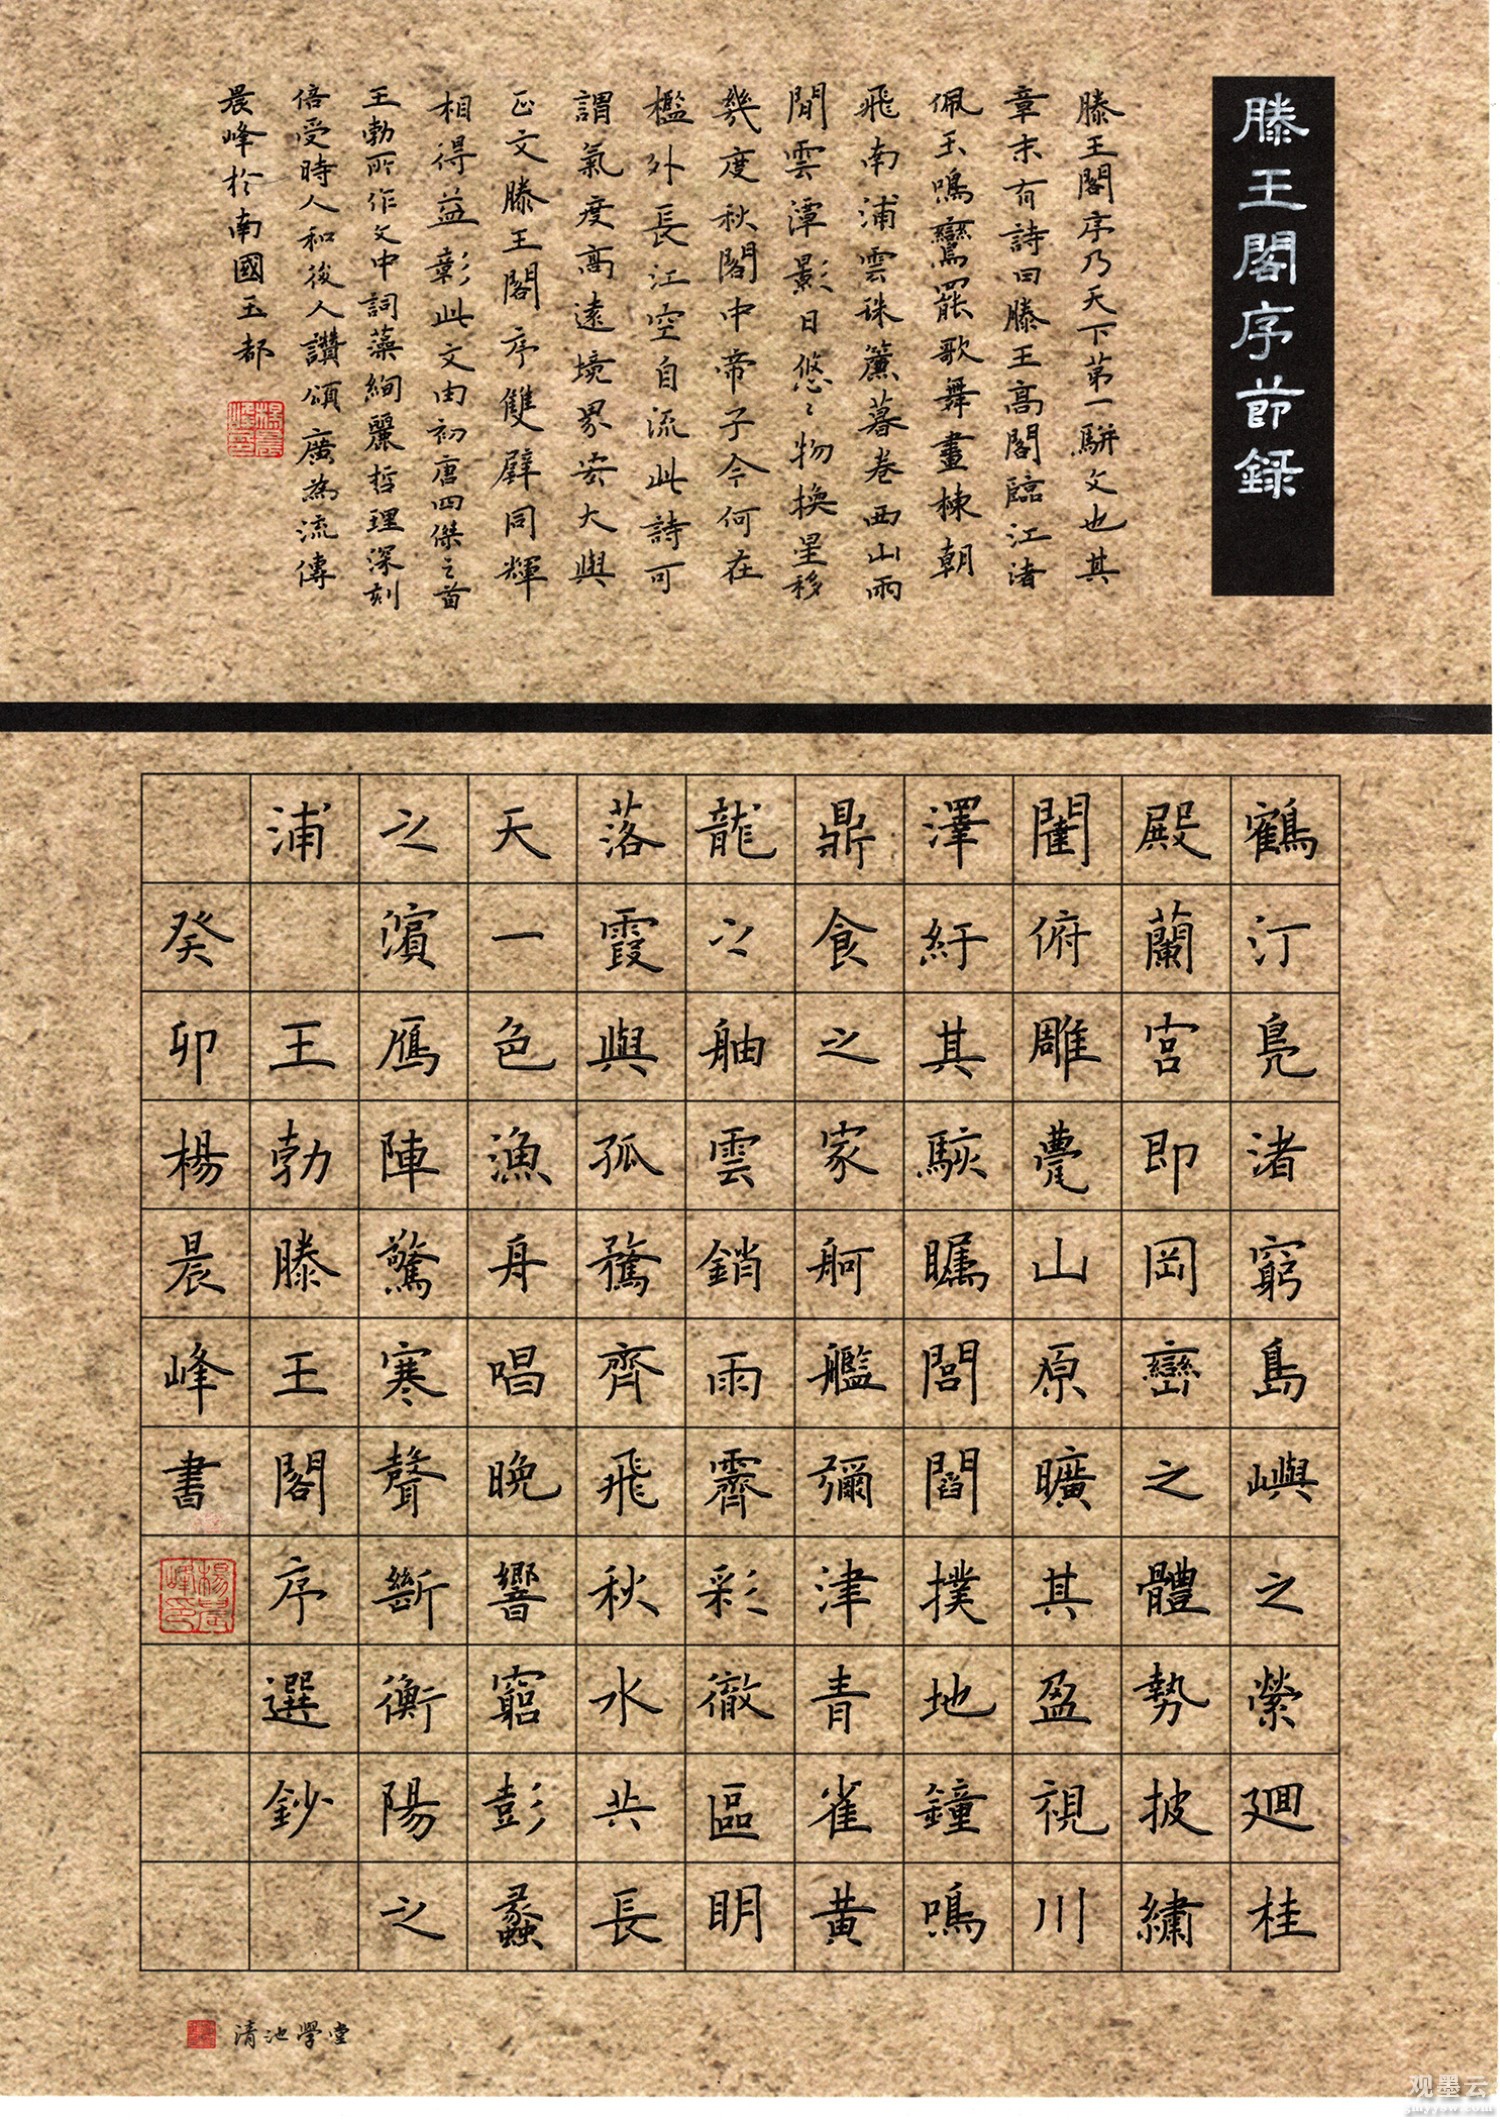 滕王閣序節録
滕王閣序乃天下第一駢文也其
章末有詩曰滕王高閣臨江渚
佩玉鳴鸞罷歌舞畫棟朝
飛南浦雲珠簾暮卷西山雨
閒雲潭影日悠〻物換星移
幾度秋閣中帝子今何在
檻外長江空自流此詩可
謂氣度高遠境界宏大與
正文滕王閣序雙璧同輝
相得益彰此文由初唐四傑之首
王勃所作文中詞藻絢麗哲理深刻
倍受時人和後人讚頌廣為流傳
晨峰於南國玉都
鶴汀鳧渚窮島嶼之縈迴桂
殿蘭宮即岡巒之體勢披繡
闥俯雕甍山原曠其盈視川
澤紆其駭矚閭閻撲地鐘鳴
鼎食之家舸艦彌津青雀黄
龍之舳雲銷雨霽彩徹區明
落霞與孤鶩齊飛秋水共長
天一色漁舟唱晚響窮彭蠡
之濱鴈陣驚寒聲斷衡陽之
浦 王勃滕王閣序選鈔
癸卯楊晨峰書
楊晨峰印
清池學堂
观墨云
gmyyow.com